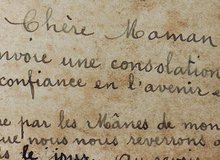 Chère Maman
nvoie une consolation
confiance en l'avenir e
e par les Mânes de mon
que nous nous reverrons
le jour